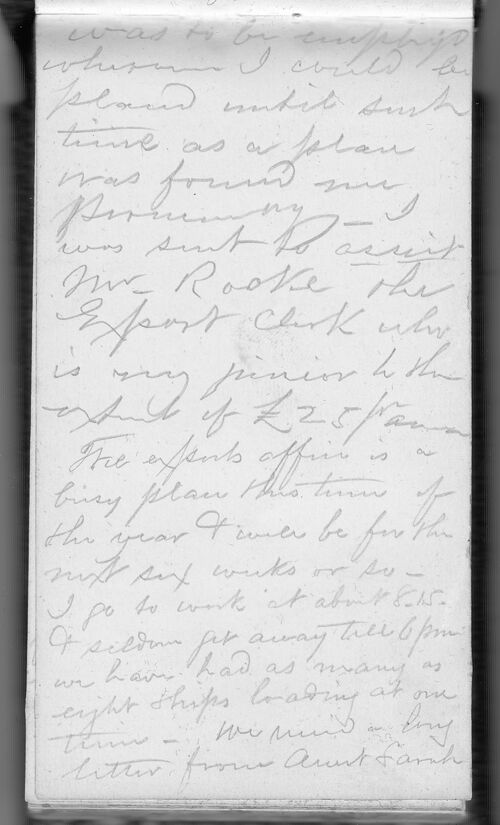 was to be employed
wherever I could be
placed until such
time as a place
was found me
I
was sent to assist
Mr Rooke the
Export Clerk who
is my junior to the
extent of £25 pr annum
The exports office is a
busy place this time of
the year & will be for the
next six weeks or so -
I go to work at about 8.15.
& seldom get away till 6 pm
we have had as many as
eight ships loading at one
time - We recd a long
letter from Aunt Sarah